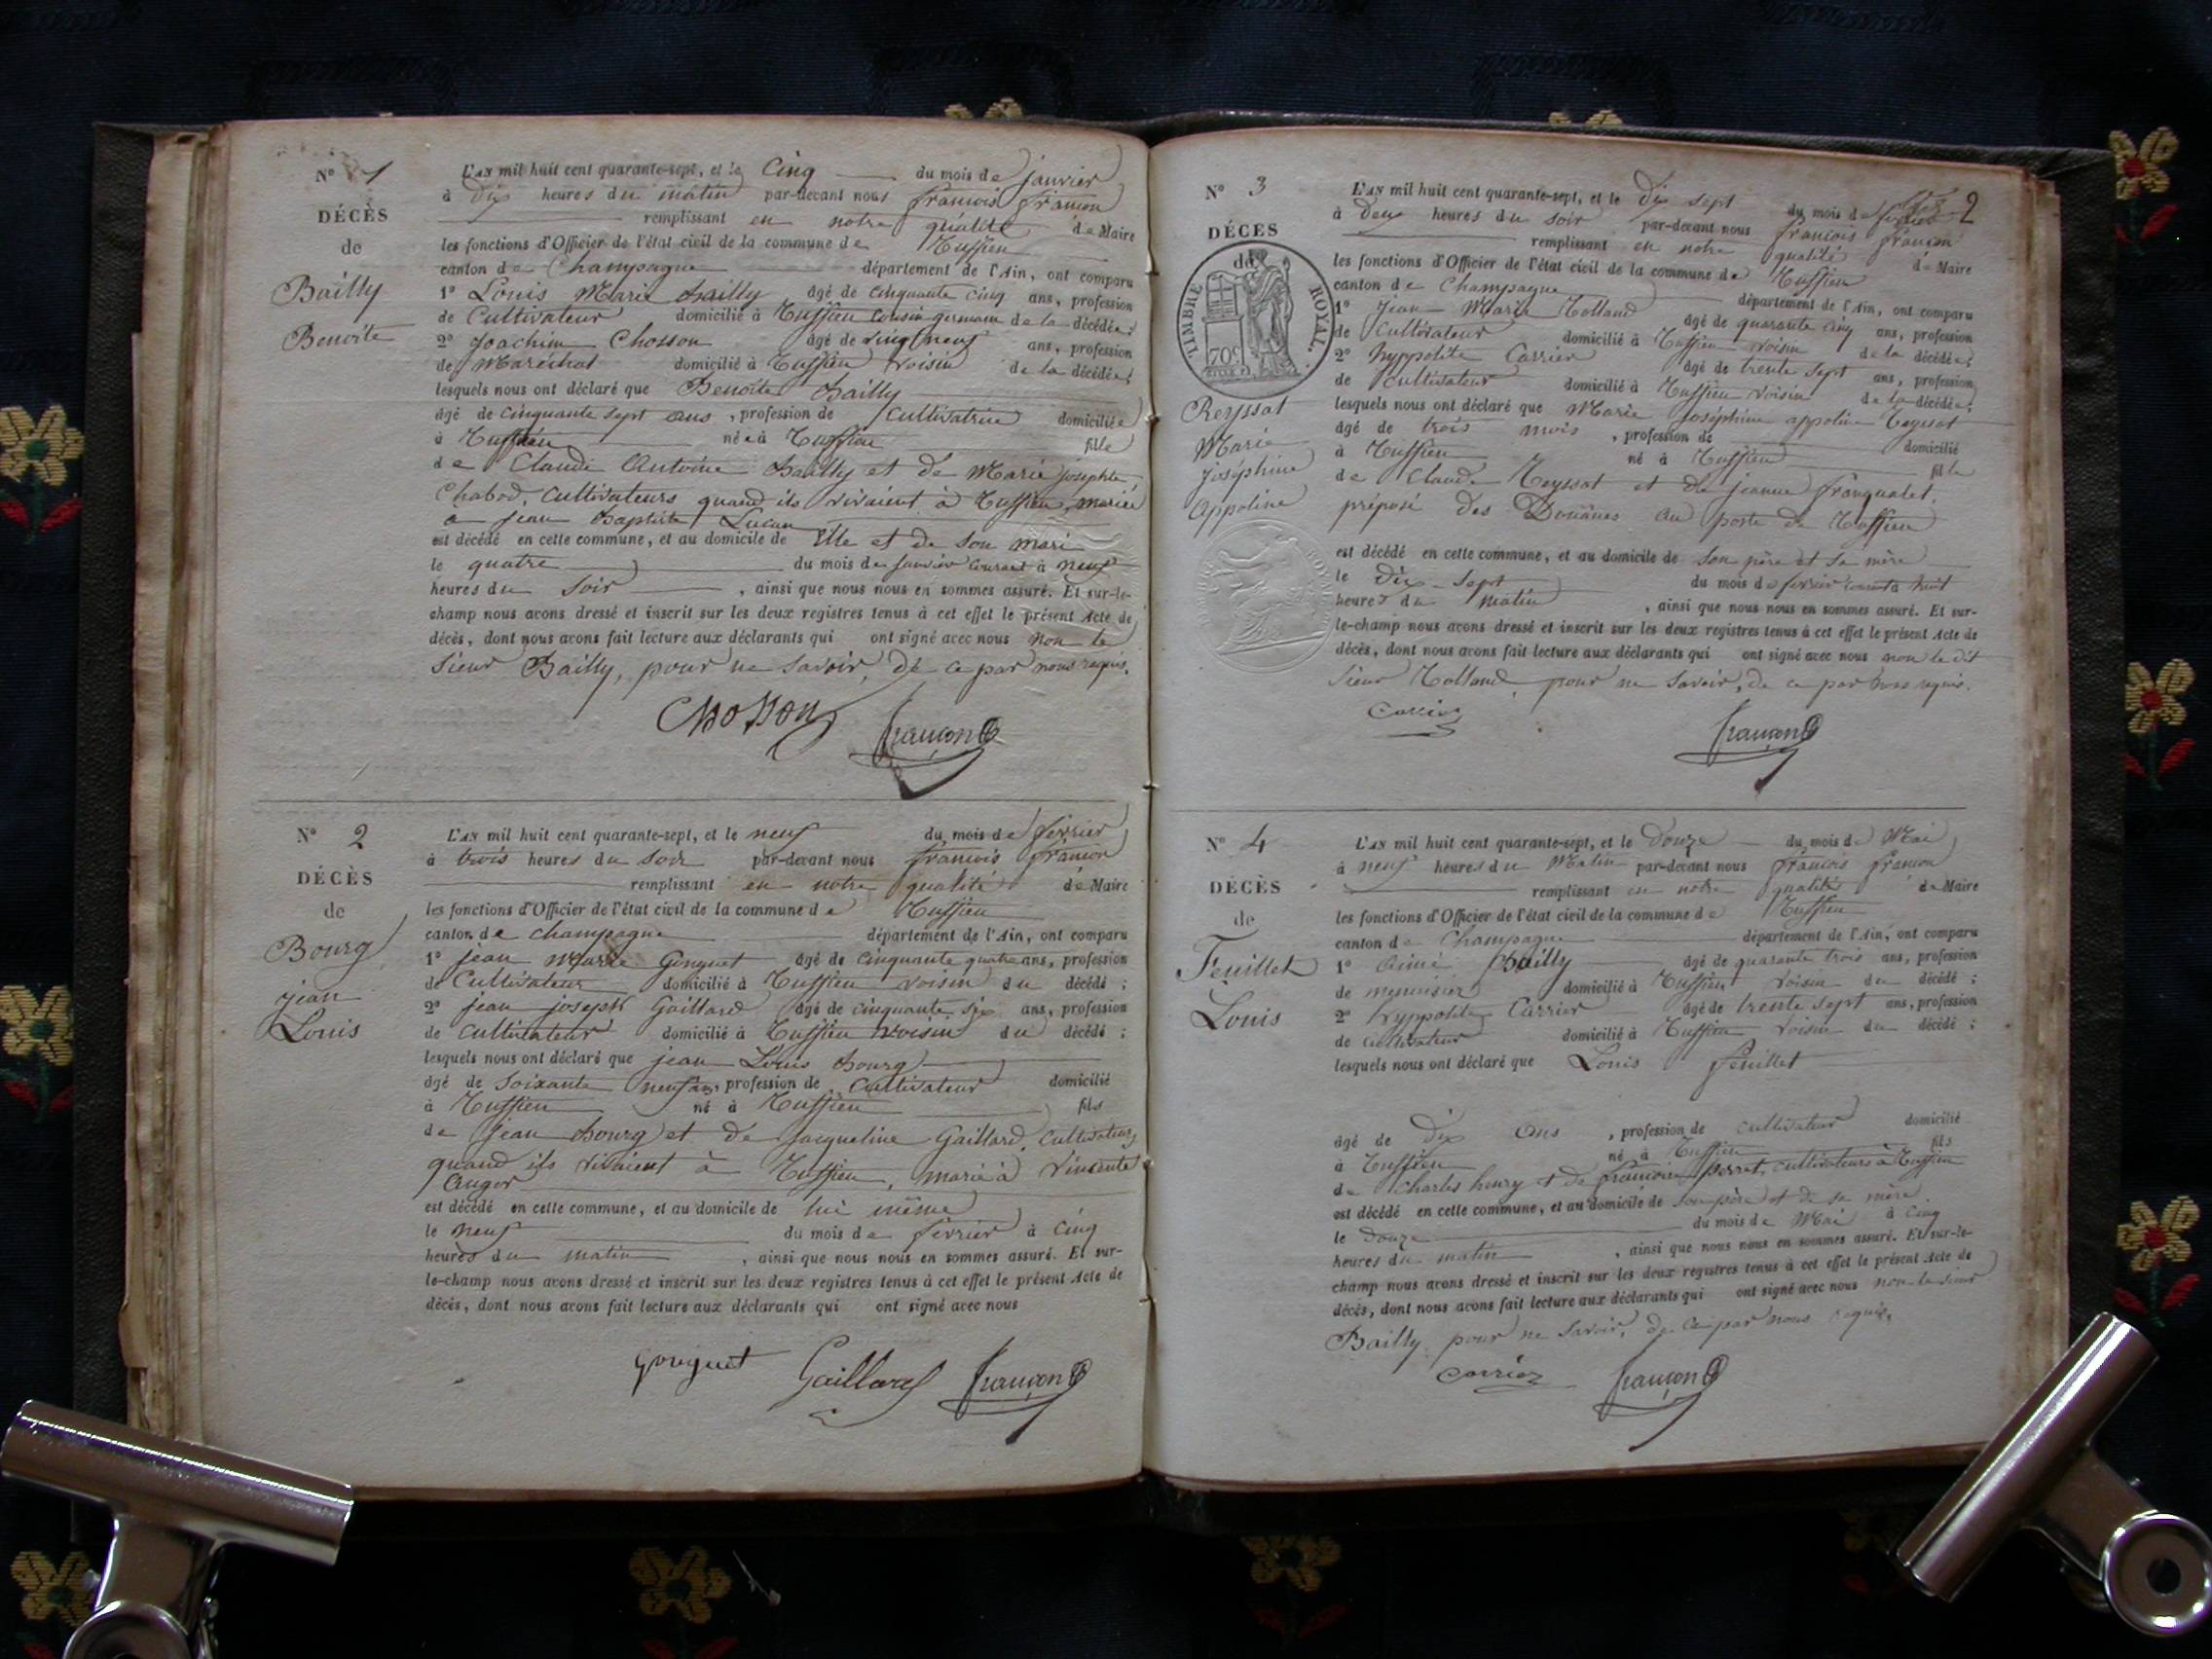 N° 1
DÉCÈS
de
Bailly
Benoite
L'AN mil huit cent quarante-sept, et le Cinq du mois de janvier
à Dix heures du matin par-devant nous françois françon
remplissant en notre qualité de Maire
les fonctions d'Officier de l'état civil de la commune de Ruffieu
canton de Champagne département de l'Ain, ont comparu
1° Louis Marie Bailly âgé de cinquante cinq ans, profession
de Cultivateur domicilié à Ruffieu cousin germain de la décédée;
2° Joachim Chosson âgé de vingt neuf ans, profession
de Maréchal domicilié à Ruffieu voisin de la décédée;
lesquels nous ont déclaré que Benoite Bailly
âgé de cinquante sept ans, profession de Cultivatrice domiciliée
à Ruffieu née à Ruffieu fille
de Claude Antoine Bailly et de Marie josephte
Chabod, cultivateurs quand ils vivaient à Ruffieu, mariée
à jean Baptiste Lucan
est décédé en cette commune, et au domicile de Elle et de son mari
le quatre du mois de janvier courant à neuf
heures du soir, ainsi que nous nous en sommes assuré. Et sur-le-
champ nous avons dressé et inscrit sur les deux registres tenus à cet effet le présent Acte de
décès, dont nous avons fait lecture aux déclarants qui ont signé avec nous non le
sieur Bailly, pour ne savoir, de ce par nous requis.
Chosson françon
N° 2
DÉCÈS
de
Bourg
jean
Louis
L'AN mil huit cent quarante-sept, et le neuf du mois de février
à trois heures du soir par-devant nous françois françon
remplissant en notre qualité de Maire
les fonctions d'Officier de l'état civil de la commune de Ruffieu
canton de Champagne département de l'Ain, ont comparu
1° jean Marie Gonguet âgé de cinquante quatre ans, profession
de Cultivateur domicilié à Ruffieu voisin du décédé;
2° jean joseph Gaillard âgé de cinquante six ans, profession
de cultivateur domicilié à Ruffieu voisin du décédé;
lesquels nous ont déclaré que jean Louis Bourg
âgé de soixante neuf ans, profession de Cultivateur domicilié
à Ruffieu né à Ruffieu fils
de jean Bourg et de jacqueline Gaillard, cultivateurs
quand ils vivaient à Ruffieu, marié à Vincente
Augor
est décédé en cette commune, et au domicile de lui même
le neuf du mois de février à cinq
heures du matin, ainsi que nous nous en sommes assuré. Et sur-
le-champ nous avons dressé et inscrit sur les deux registres tenus à cet effet le présent Acte de
décès, dont nous avons fait lecture aux déclarants qui ont signé avec nous
gonguet Gaillard françon
2
N° 3
DÉCÈS
de
TIMBRE ROYAL.
70c
Reyssat
Marie
Joséphine
Appoline
L'AN mil huit cent quarante-sept, et le Dix sept du mois de février
à Deux heures du soir par-devant nous françois françon
remplissant en notre qualité de Maire
les fonctions d'Officier de l'état civil de la commune de Ruffieu
canton de Champagne département de l'Ain, ont comparu
1° Jean Marie Rolland âgé de quarante cinq ans, profession
de Cultivateur domicilié à Ruffieu voisin de la décédée;
2° hyppolite Carrier âgé de trente sept ans, profession
de cultivateur domicilié à Ruffieu voisin de la décédée;
lesquels nous ont déclaré que Marie joséphine appoline Reyssat
âgé de trois mois, profession de domicilié
à Ruffieu né à Ruffieu fille
de Claude Reyssat et de jeanne franqualet,
préposé des Douanes au poste de Ruffieu
est décédé en cette commune, et au domicile de son père et sa mère
le Dix-sept du mois de février courant à huit
heures du matin, ainsi que nous nous en sommes assuré. Et sur-
le-champ nous avons dressé et inscrit sur les deux registres tenus à cet effet le présent Acte de
décès, dont nous avons fait lecture aux déclarants qui ont signé avec nous non le dit
sieur Rolland, pour ne savoir, de ce par nous requis.
Carrier françon
N° 4
DÉCÈS
de
Feuillet
Louis
L'AN mil huit cent quarante-sept, et le Douze du mois de Mai
à neuf heures du Matin par-devant nous françois françon
remplissant en notre qualité de Maire
les fonctions d'Officier de l'état civil de la commune de Ruffieu
canton de Champagne département de l'Ain, ont comparu
1° Aimé Bailly âgé de quarante trois ans, profession
de menuisier domicilié à Ruffieu voisin du décédé;
2° hyppolite Carrier âgé de trente sept ans, profession
de cultivateur domicilié à Ruffieu voisin du décédé;
lesquels nous ont déclaré que Louis feuillet
âgé de dix ans, profession de cultivateur domicilié
à Ruffieu né à Ruffieu fils
de Charles henry et de françoise perret, cultivateurs à Ruffieu
est décédé en cette commune, et au domicile de son père et de sa mère.
le douze du mois de Mai à cinq
heures du matin, ainsi que nous nous en sommes assuré. Et sur-le-
champ nous avons dressé et inscrit sur les deux registres tenus à cet effet le présent Acte de
décès, dont nous avons fait lecture aux déclarants qui ont signé avec nous non le sieur
Bailly pour ne savoir, de ce par nous requis.
Carrier françon